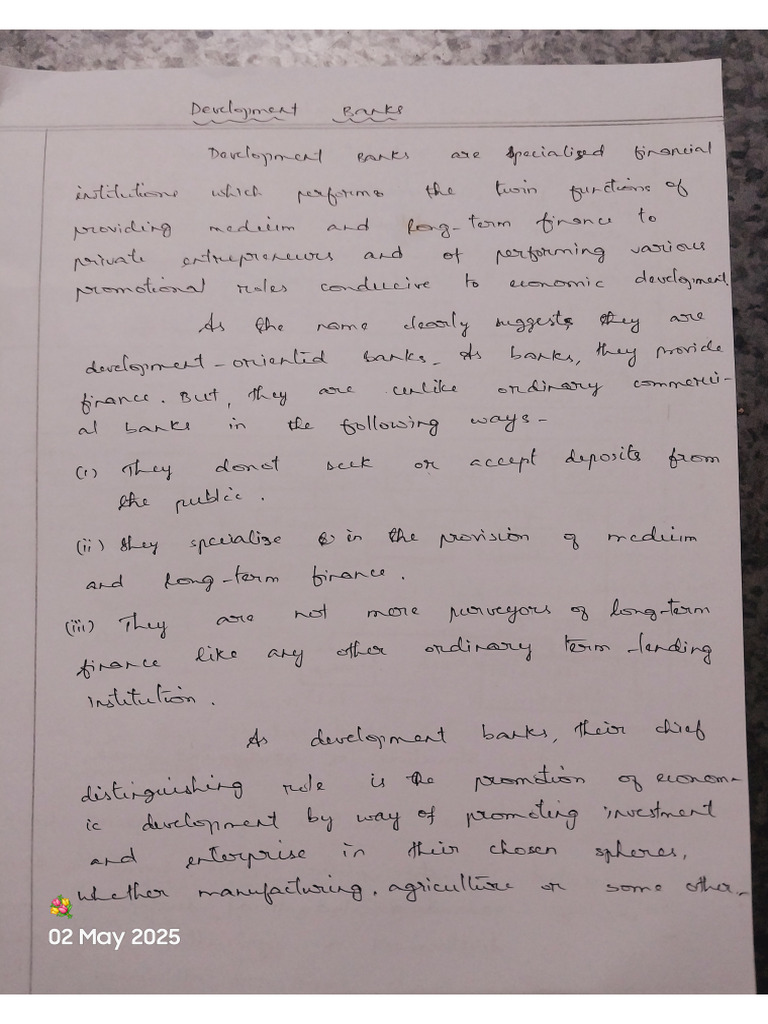 Development Banks
Development Banks are specialized financial
institutions which performs the twin functions of
providing medium and long-term finance to
private entrepreneurs and of performing various
promotional roles conducive to economic development.
As the name clearly suggests they are
development-oriented banks. As banks, they provide
finance. But, they are unlike ordinary commerci-
al banks in the following ways-
(i) They donot seek or accept deposits from
the public.
(ii) they specialize in the provision of medium
and long-term finance.
(iii) They are not more purveyors of long-term
finance like any other ordinary term-lending
institution.
As development banks, their chief
distinguishing role is the promotion of econom-
ic development by way of promoting investment
and enterprise in their chosen spheres,
whether manufacturing, agriculture or some other.
02 May 2025